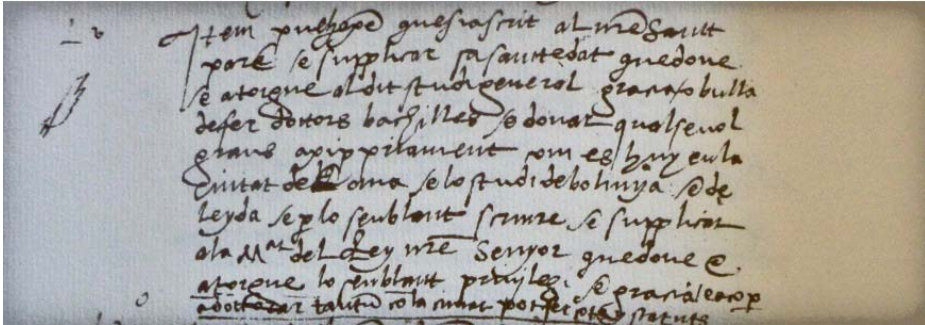 Item puehopē que sia scrit al nrē Sanct
pare e supplicar sa sanctedat que done
e atorgue al dit studi general gracia o bulla
de fer doctors bachilles e donar qualsevol
graus axi propiament com es huy en la
Ciutat de Roma e lo studi de bolunya e de
leyda e per lo senblant scriure e supplicar
a la Mat del Rey nrē Senyor que done e
atorgue lo senblant privilegi e gracia
tantū cō la ciutat pot fer statuts